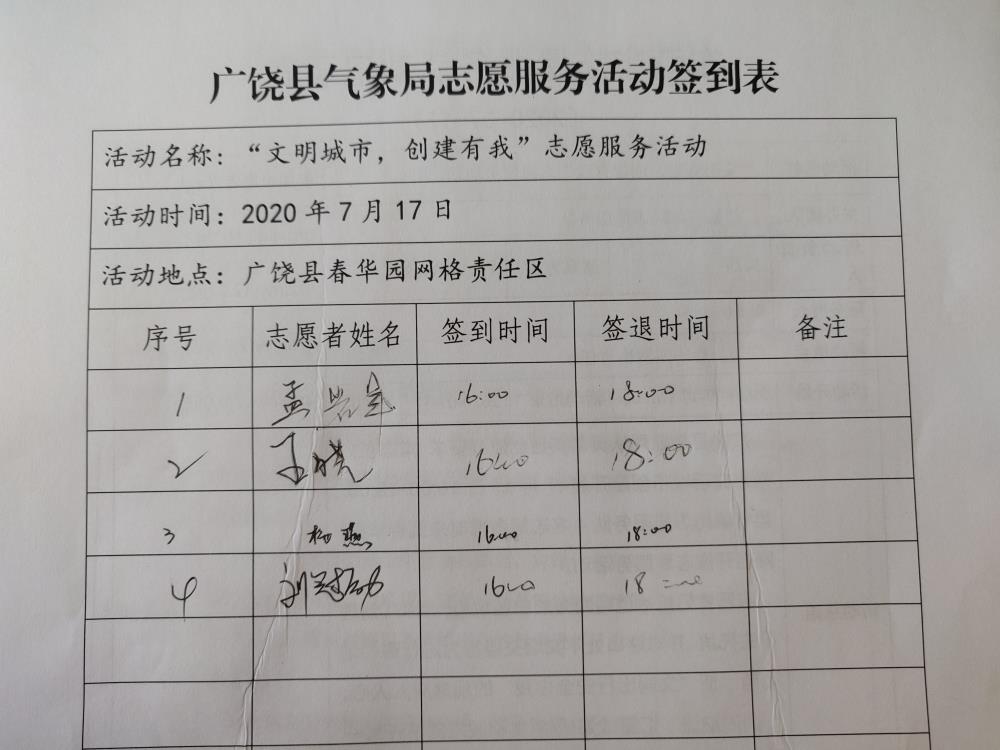 广饶县气象局志愿服务活动签到表
活动名称：“文明城市，创建有我”志愿服务活动
活动时间：2020 年 7 月 17 日
活动地点：广饶县春华园网格责任区
序号 志愿者姓名 签到时间 签退时间 备注
1 孟 16:00 18:00
2 王晓 16:00 18:00
3 杨燕 16:00 18:00
4 刘 16:00 18:00